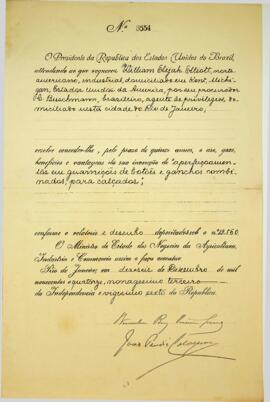 Nº 8554
O Presidente da Republica dos Estados Unidos do Brazil,
attendendo ao que requereu William Elijah Elliott, norte
americano, industrial, domiciliado em Kent, Michi-
gan, Estados Unidos da America, por seu procurador
Buschmann, brasileiro, agente de privilegios, do-
miciliado nesta cidade do Rio de Janeiro;
resolve conceder-lhe, pelo prazo de quinze annos, o uso, gozo,
beneficios e vantagens da sua invenção de "aperfeiçoamen-
tos em guarnições de botões e ganchos combi-
nados, para calçados;
conforme o relatorio e desenho depositados sob o nº
O Ministro de Estado dos Negocios da Agricultura,
Industria e Commercio assim o faça executar.
Rio de Janeiro, em dezeseis de Dezembro de mil
novecentos e quatorze, nonagesimo terceiro
da Independencia e vigesimo sexto da Republica.